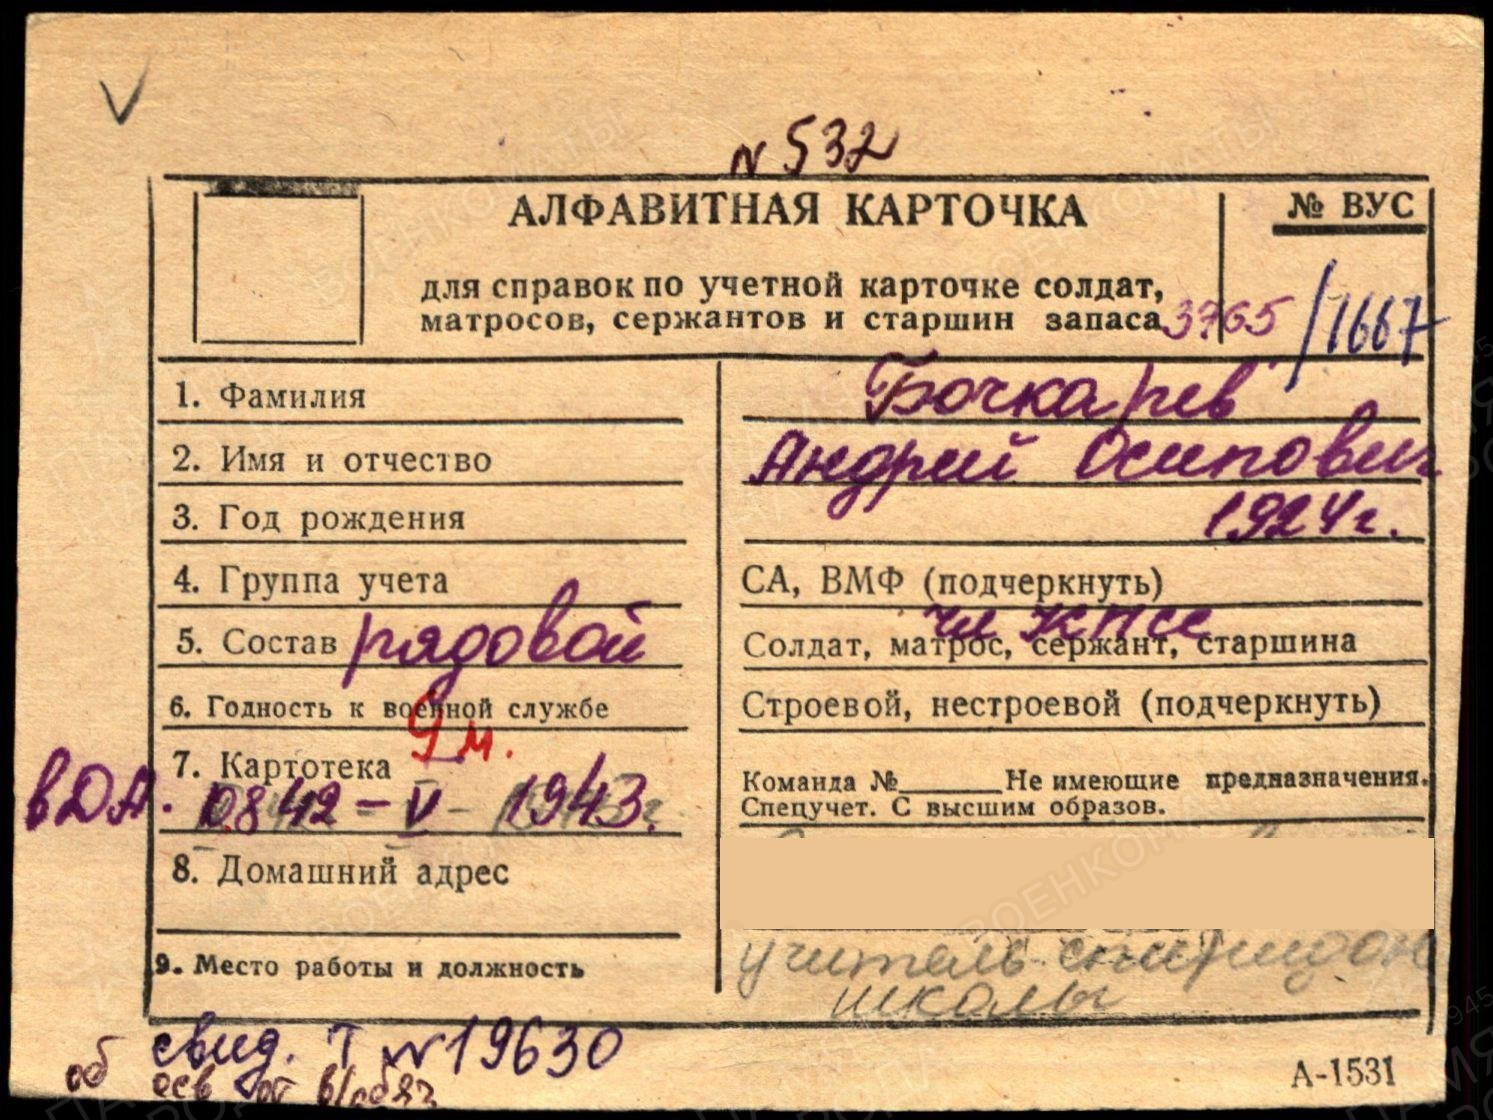 N 532
АЛФАВИТНАЯ КАРТОЧКА
№ ВУС
для справок по учетной карточке солдат,
матросов, сержантов и старшин запаса
3765 /1667
1. Фамилия Бочкарев
2. Имя и отчество Андрей Осипович
3. Год рождения 1924 г.
4. Группа учета СА, ВМФ (подчеркнуть)
чл КПСС
5. Состав рядовой Солдат, матрос, сержант, старшина
6. Годность к военной службе Строевой, нестроевой (подчеркнуть)
9 м.
7. Картотека Команда №_____Не имеющие предназначения.
Спецучет. С высшим образов.
в ДА. 10842 – V – 1943.
8. Домашний адрес
9. Место работы и должность учитель спиридон
школы
об свид. Т N 19630
осв от в/обяз
А-1531